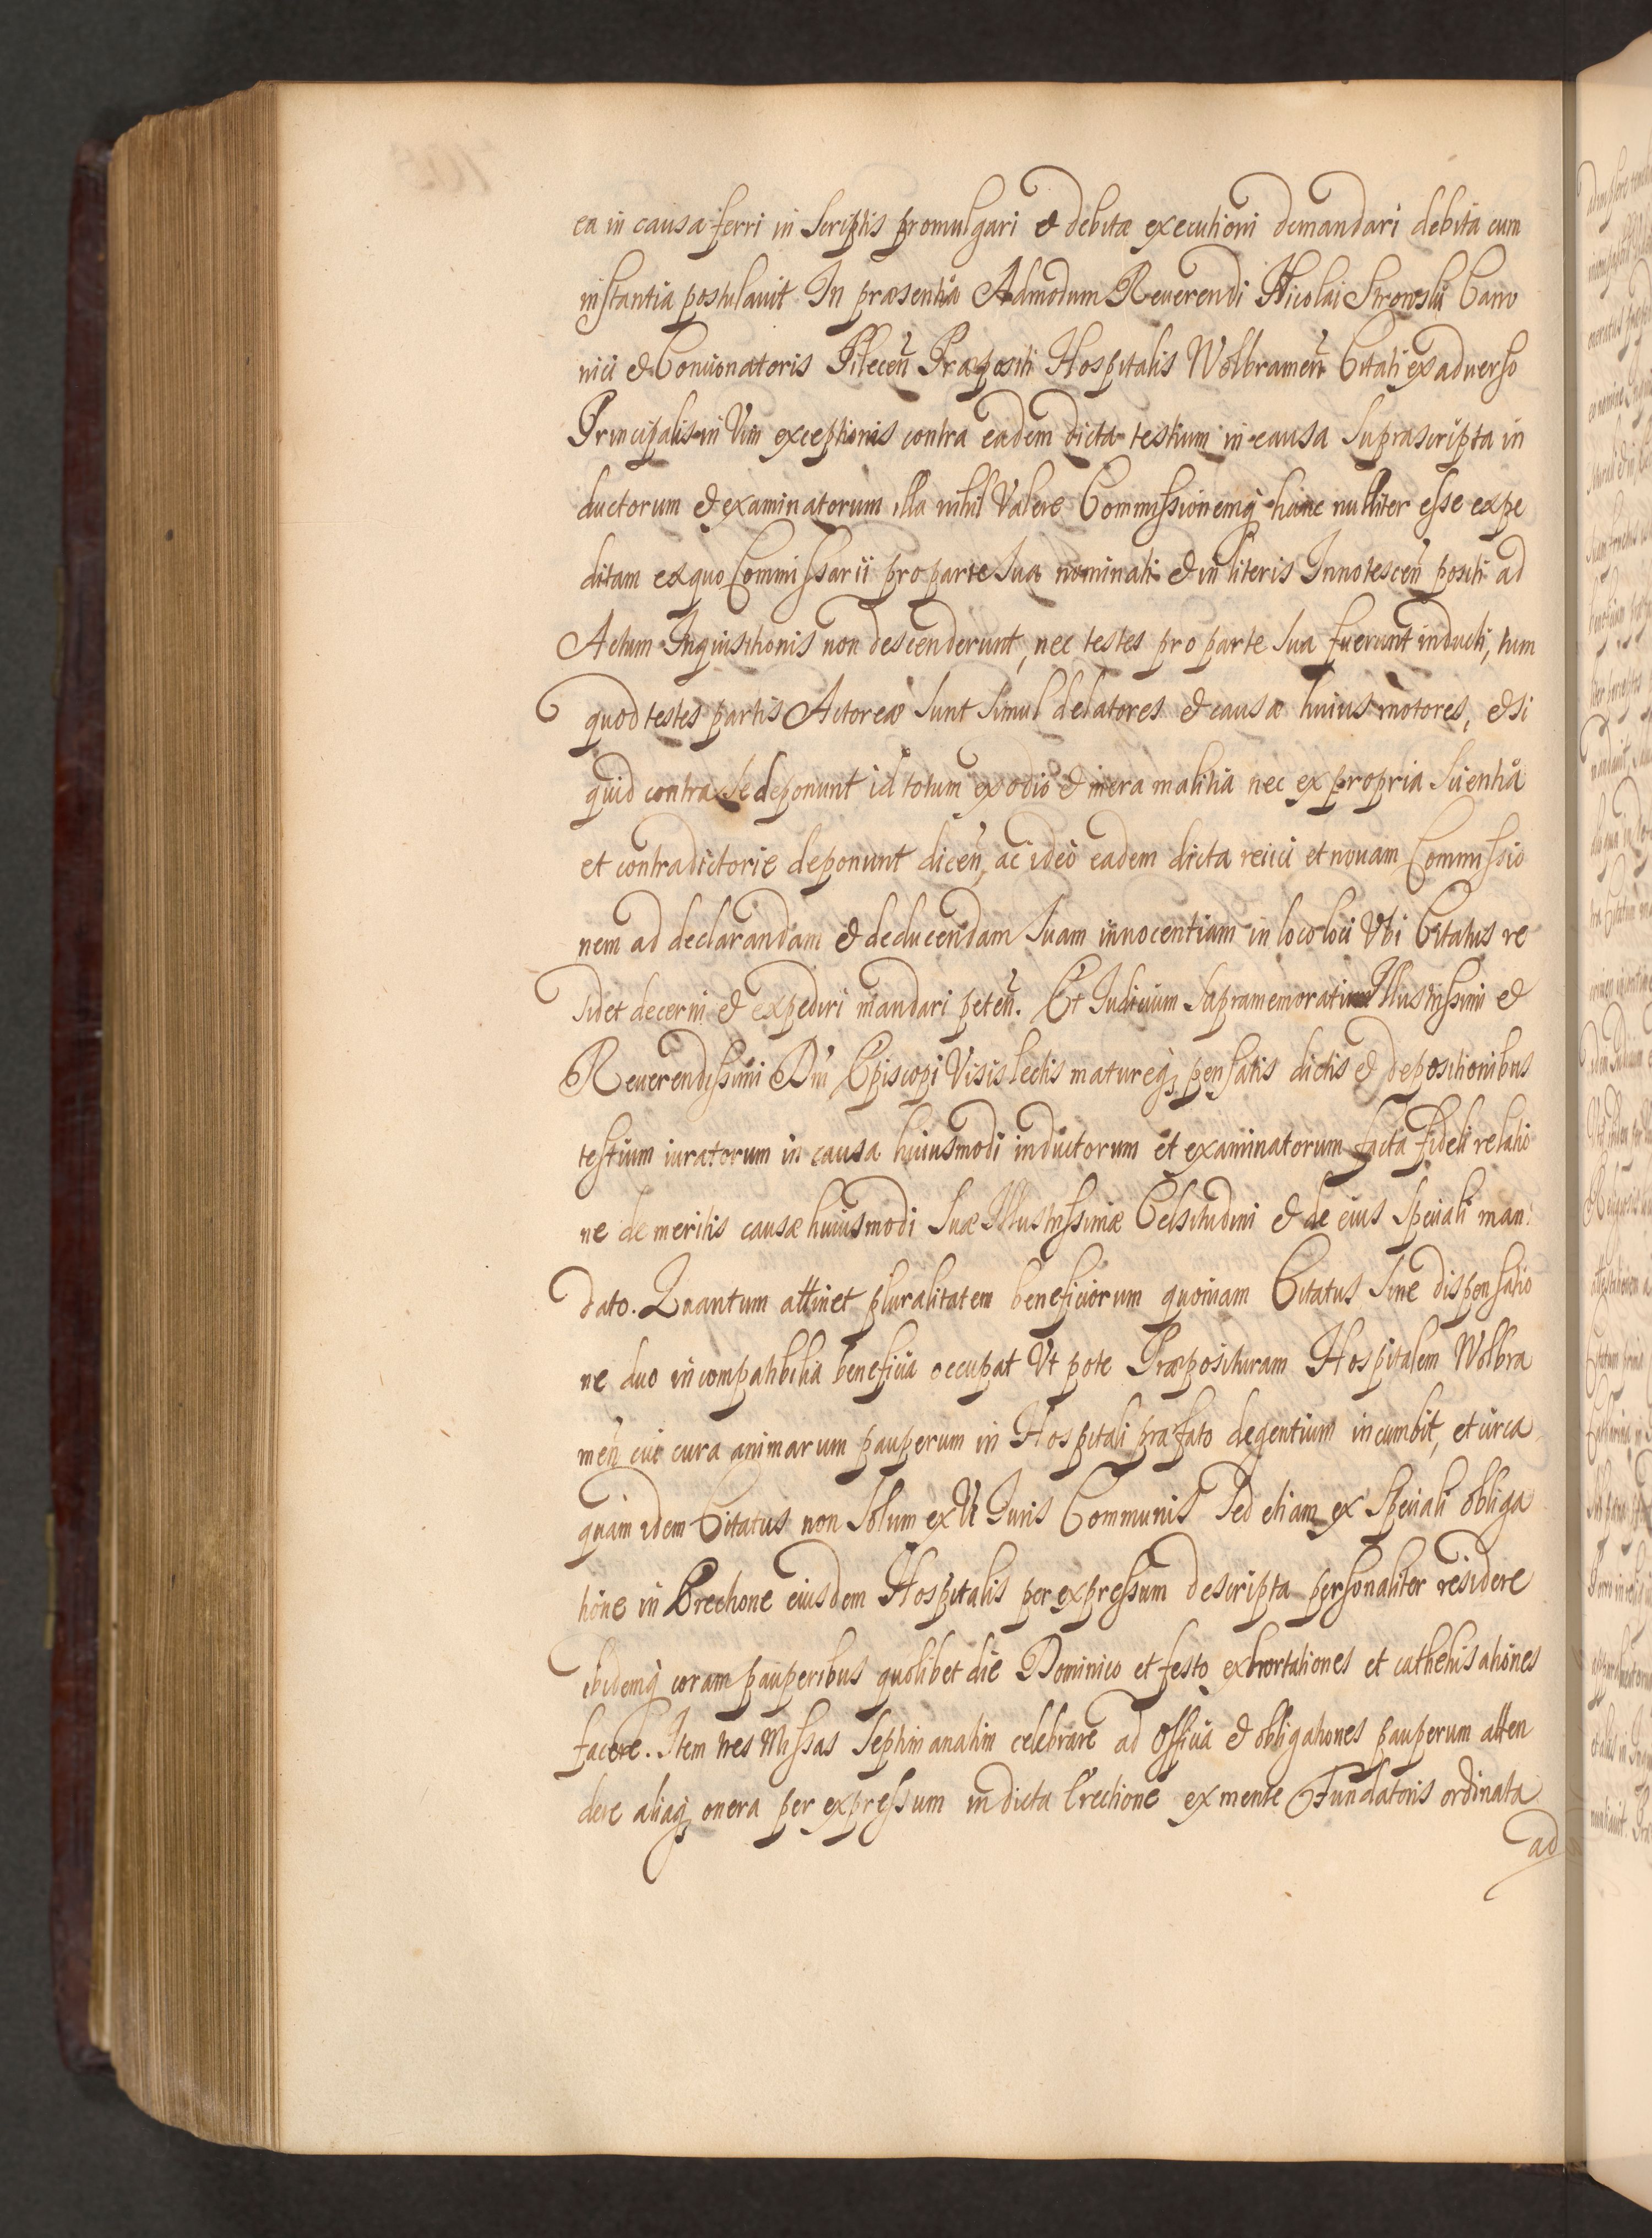 ea in causa ferri in scriptis promulgari et debitæ executioni demandari debita cum
instantia postulauit. In præsentia Admodum Reuerendi Nicolai Strowski Cano
nici et Concionatoris Pilecen̄ Præpositi Hospitalis Wolbramen̄ Citati ex aduerso
Principalis in Vim exceptionis contra eadem dicta testium in causa suprascripta in
ductorum et examinatorum illa nihil Valere Commissionemq hanc nulliter esse expe
ditam ex quo Commissarii pro parte sua nominati et in literis Innotescen̄ positi ad
Actum Inquisitionis non descenderunt, nec testes pro parte sua fuerunt inducti, tum
quod testes partis Actoreæ sunt simul delatores et causæ huius motores, et si
quid contra se deponunt id totum ex odio et mera malitia nec ex propria scientia
et contradictorie deponunt dicen̄, ac ideo eadem dicta reiici et nouam Commissio
nem ad declarandam et deducendam suam innocentiam in loco loci Vbi Citatus re
sidet decerni et expediri mandari peten̄. Et Iudicium supramemorati Illustrissimi et
Reuerendissimi Dni Episcopi Visis lectis matureq pensatis dictis et depositionibus
testium iuratorum in causa huiusmodi inductorum et examinatorum facta fideli relatio
ne de meritis causæ huiusmodi suæ Illustrissimæ Celsitudini et de eius speciali man
dato. Quantum attinet pluralitatem beneficiorum quoniam Citatus sine dispensatio
ne duo incompatibilia beneficia occupat Vt pote Præposituram Hospitalem Wolbra
men̄ cui cura animarum pauperum in Hospitali præfato degentium incumbit, et circa
quam idem Citatus non solum ex Vi Iuris Communis sed etiam ex speciali obliga
tione in Erectione eiusdem Hospitalis per expressum descripta personaliter residere
ibidemq coram pauperibus quolibet die Dominico et festo exhortationes et cathehisationes
facere. Item tres Missas septimanatim celebrare ad officia et obligationes pauperum atten
dere aliaq onera per expressum in dicta Erectione ex mente Fundatoris ordinata
ad